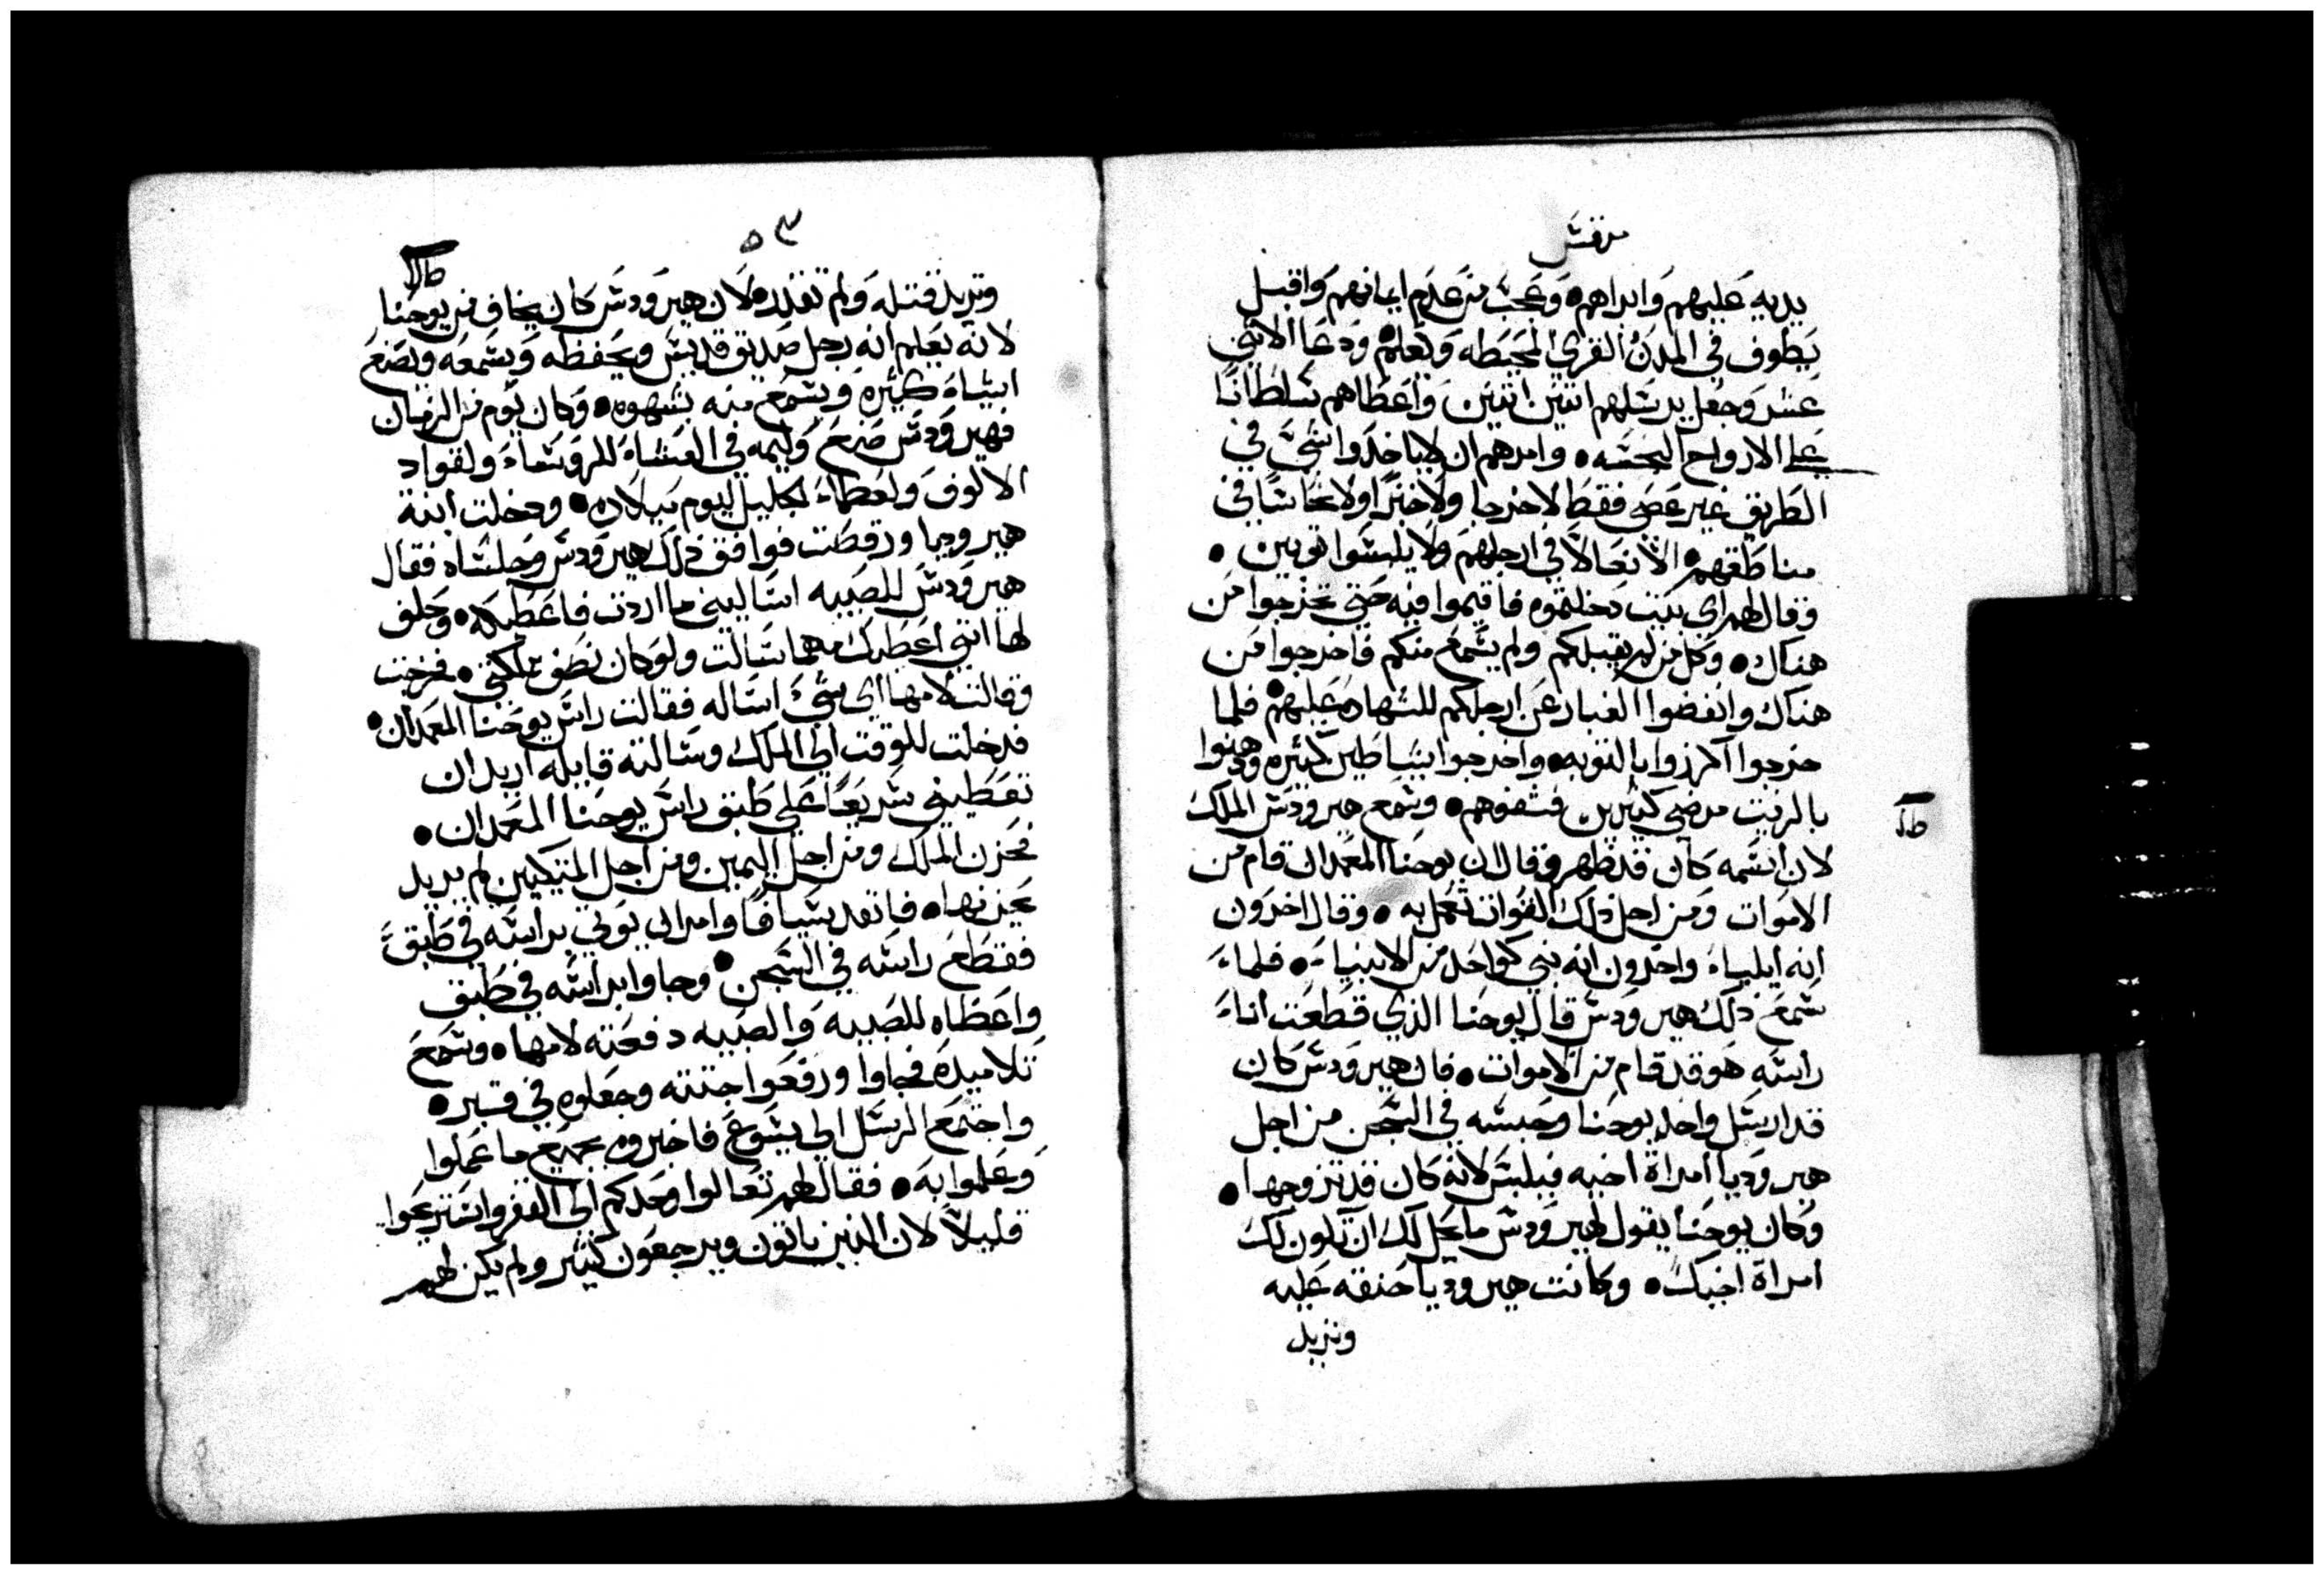 مرقس
يديه عليهم وابراهم وعجب من عدم ايمانهم واقبل
يطوف في المدن القري المحيطه ويعلم ودعا الاثني
عشر وجعل يرسلهم اثنين اثنين واعطاهم سلطانا
علي الارواح النجسه وامرهم ان لا ياخذوا شي في
الطريق غير عصي فقط لا خرجا ولا خبزا ولا نحاسا في
مناطقهم الا نعالا في ارجلهم ولا يلبسوا توبين
وقال لهم اي بيت دخلتموه فاقيموا فيه حتي تخرجوا من
هناك وكل من لم يقبلكم ولم يسمع منكم فاخرجوا من
هناك وانفضوا الغبار عن ارجلكم للشهاده عليهم فلما
خرجوا اكرزوا بالتوبه واخرجوا شياطين كثيره ودهنوا
بالزيت مرضي كثيرين فشفوهم وسمع هيرودس الملك
طلا
لان اسمه كان قد ظهر وقال ان يوحنا المعمدان قام من
الاموات ومن اجل ذلك القوات تعمل به وقال اخرون
انه ايلياء واخرون انه نبي كواحد من الانبياء فلماء
سمع ذلك هيرودس قال يوحنا الذي قطعت اناء
راسه هو قد قام من الاموات فان هيرودس كان
قد ارسل واخد يوحنا وحبسه في السجن من اجل
هيروديا امراة اخيه فيلبس لانه كان قد تزوجها
وكان يوحنا يقول لهيرودس ما يحل لك ان تكون لك
امراة اخيك وكانت هيروديا حنقه عليه
وتريد
٥٣
طلا
وتريد قتله ولم تقدر لان هيرودس كان يخاف من يوحنا
لانه يعلم انه رجل صديق قديس ويحفظه ويسمعه ويصنع
اشياء كثيره ويسمع منه بشهوه وكان يوم من الزمان
فهيرودس صنع وليمه في العشاء للروساء ولقواد
الالوف ولعظماء لجليل ليوم ميلاده ودخلت ابنة
هيروديا ورقصت فوافق ذلك هيرودس وجلساه فقال
هيرودس للصبيه اساليني ما اردت فاعطيكه وحلف
لها انني اعطيك مهما سالت ولو كان نصف مملكتي فخرجت
وقالت لامها اي شي اساله فقالت راس يوحنا المعمدان
فدخلت للوقت الي الملك وسالته قايله اريد ان
تعطيني سريعا علي طبق راس يوحنا المعمدان
فحزن الملك ومن اجل اليمين ومن اجل المتكيين لم يريد
يحزنها فانفد سيافا وامر ان يوتي براسه في طبق
فقطع راسه في السجن وجاوا براسه في طبق
واعطاه للصبيه والصبيه دفعته لامها وسمع
تلاميده فجاوا ورفعوا جتته وجعلوه في قبر
واجتمع الرسل الي يسوع فاخبروه بجميع ما عملوا
وعلموا به فقال لهم تعالوا وحدكم الي القفر واستريحوا
قليلا لان الذين ياتون ويرجعون كثير ولم يكن لهم